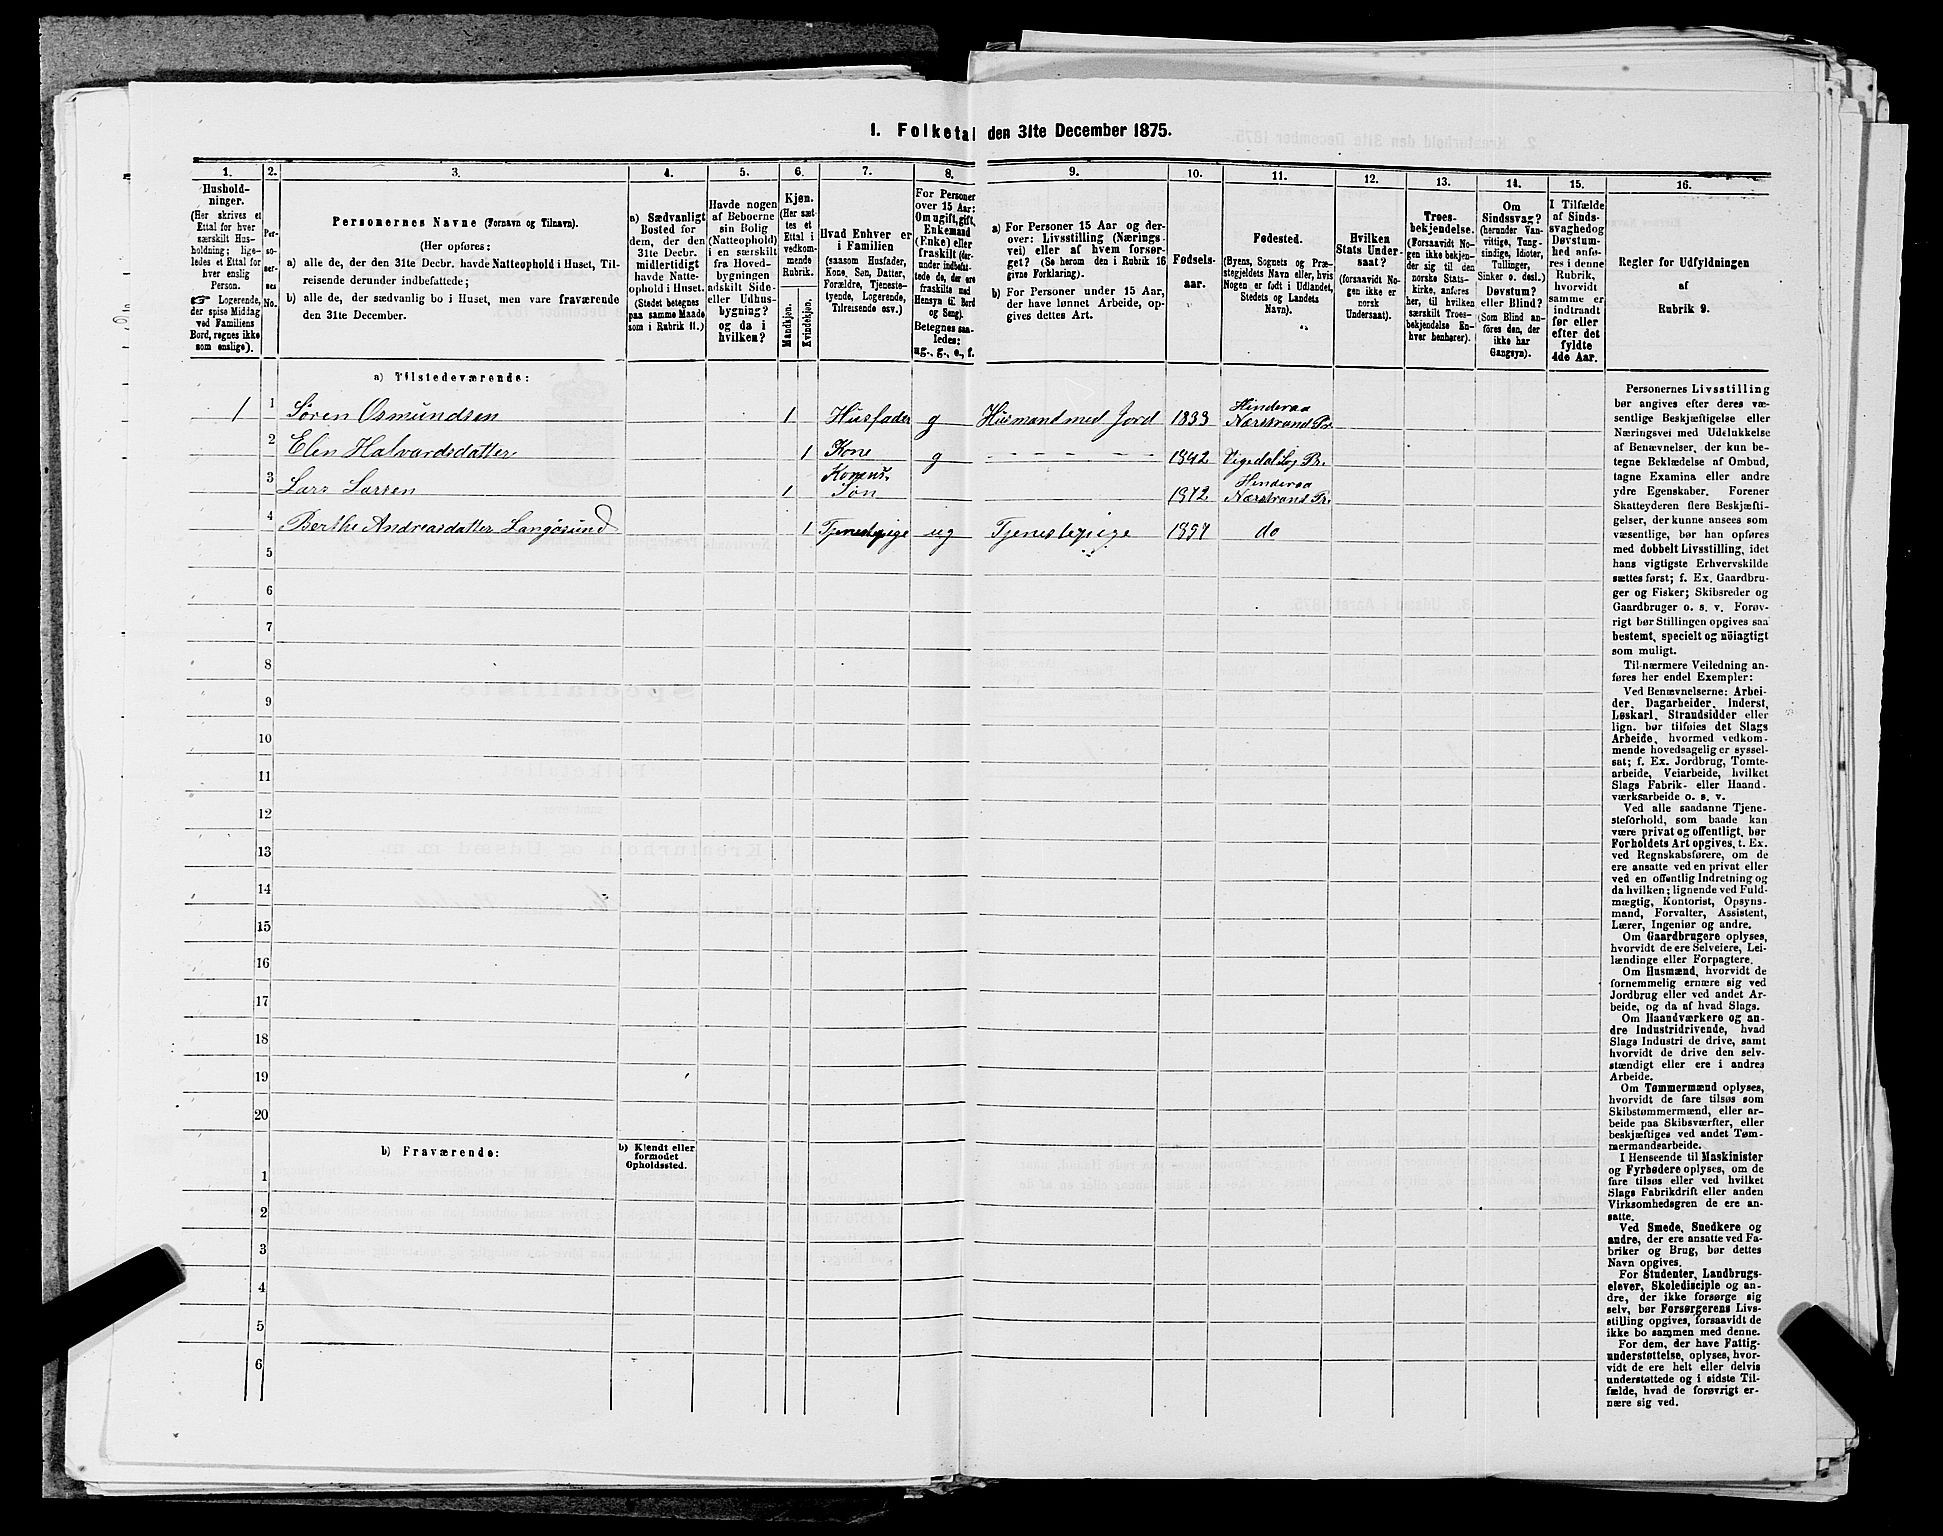 1. Folketal den 31te December 1875.
1. 2. 3. 4. 5. 6. 7. 8. 9. 10. 11. 12. 13. 14. 15. 16.
Hushold-
ninger.
(Her skrives et
Ettal for hver
særskilt Hus-
holdning; lige-
ledes et Ettal for
hver enslig
Person.
☞ Logerende,
der spise Middag
ved Familiens
Bord, regnes ikke
som enslige).
Per-
so-
ner-
nes
No.
Personernes Navne (Fornavn og Tilnavn).
(Her opføres:
a) alle de, der den 31te Decbr. havde Natteophold i Huset, Til-
reisende derunder indbefattede;
b) alle de, der sædvanlig bo i Huset, men vare fraværende
den 31te December.
a) Sædvanligt
Bosted for
dem, der den
31te Decbr.
midlertidigt
havde Natte-
ophold i Huset.
(Stedet betegnes
paa samme Maade
som i Rubrik 11.)
Havde nogen
af Beboerne
sin Bolig
(Natteophold)
i en særskilt
fra Hoved-
bygningen
adskilt Side-
eller Udhus-
bygning?
og da i
hvilken?
Kjøn.
(Her sæt-
tes et
Ettal i
vedkom-
mende
Rubrik.
Mandkjøn.
Kvindekjøn.
Hvad Enhver er
i Familien
(saasom Husfader,
Kone, Søn, Datter,
Forældre, Tjeneste-
tyende, Logerende,
Tilreisende osv.)
For Personer
over 15 Aar:
Om ugift, gift,
Enkemand
(Enke) eller
fraskilt (der-
under indbefat-
tede de, der ere
fraskilte med
Hensyn til Bord
og Seng).
Betegnes saa-
ledes:
ug., g., e., f.
a) For Personer 15 Aar og der-
over: Livsstilling (Nærings-
vei) eller af hvem forsør-
get? (Se herom den i Rubrik 16
givne Forklaring).
b) For Personer under 15 Aar,
der have lønnet Arbeide, op-
gives dettes Art.
Fødsels-
aar.
Fødested.
(Byens, Sognets og Præ-
stegjeldets Navn eller, hvis
Nogen er født i Udlandet,
Stedets og Landets
Navn).
Hvilken
Stats Under-
saat?
(forsaavidt No-
gen ikke er
norsk
Undersaat).
Troes-
bekjendelse.
(Forsaavidt No-
gen ikke bekjen-
der sig til den
norske Stats-
kirke, anføres
her, til hvilken
særskilt Troes-
bekjendelse En-
hver henhører).
Om
Sindssvag?
(herunder Van-
vittige, Tung-
sindige, Idioter,
Tullinger,
Sinker o. desl.)
Døvstum?
eller Blind?
(Som Blind an-
føres den, der
ikke har
Gangsyn).
I Tilfælde
af Sinds-
svaghed og
Døvstum-
hed anfø-
res i denne
Rubrik,
hvorvidt
samme er
indtraadt
før eller
efter det
fyldte
4de Aar.
Regler for Udfyldningen
af
Rubrik 9.
a) Tilstedeværende:
1 1 Søren Osmundsen 1 Husfader g Husmand med Jord 1833 Hinderaa Nærstrand Pr.
2 Elen Halvardsdatter 1 Kone g - - - - - 1842 Vigedal S. Pr.
3 Lars Larsen 1 Konens Søn 1872 Hinderaa Nærstrand Pr.
4 Berthe Andreasdatter Langøsund 1 Tjenestepige ug Tjenestepige 1857 do
5
6
7
8
9
10
11
12
13
14
15
16
17
18
19
20
b) Fraværende:
b) Kjendt eller
formodet
Opholdssted.
1
2
3
4
5
6
Personernes Livsstilling
bør angives efter deres væ-
sentlige Beskjæftigelse eller
Næringsvei med Udelukkelse
af Benævnelser, der kun be-
tegne Beklædelse af Ombud,
tagne Examina eller andre
ydre Egenskaber. Forener
Skatteyderen flere Beskjæfti-
gelser, der kunne ansees som
væsentlige, bør han opføres
med dobbelt Livsstilling, idet
hans vigtigste Erhvervskilde
sættes først; f. Ex. Gaardbru-
ger og Fisker; Skibsreder og
Gaardbruger o. s. v. Forøv-
rigt bør Stillingen opgives saa
bestemt, specielt og nöiagtigt
som muligt.
Til nærmere Veiledning an-
føres her endel Exempler:
Ved Benævnelserne: Arbei-
der, Dagarbeider, Inderst,
Løskarl, Strandsidder eller
lign. bør tilføies det Slags
Arbeide, hvormed vedkom-
mende hovedsagelig er syssel-
sat; f. Ex. Jordbrug, Tomte-
arbeide, Veiarbeide, hvilket
Slags Fabrik- eller Haand-
værksarbeide o. s. v.
Ved alle saadanne Tjene-
steforhold, som baade kan
være privat og offentligt, bør
Forholdets Art opgives, t. Ex.
ved Regnskabsførere, om de
ere ansatte ved en privat eller
ved en offentlig Indretning og
da hvilken; lignende ved Fuld-
mægtig, Kontorist, Opsyns-
mand, Forvalter, Assistent,
Lærer, Ingeniør og andre.
Om Gaardbrugere oplyses,
hvorvidt de ere Selveiere, Lei-
lændinge eller Forpagtere.
Om Husmænd, hvorvidt de
fornemmelig ernære sig ved
Jordbrug eller ved andet Ar-
beide, og da af hvad Slags.
Om Haandværkere og an-
dre Industridrivende, hvad
Slags Industri de drive, samt
hvorvidt de drive den selv-
stændigt eller ere i andres
Arbeide.
Om Tømmermænd oplyses,
hvorvidt de fare tilsøs som
Skibstømmermænd, eller ar-
beide paa Skibsværfter, eller
beskjæftiges ved andet Tøm-
mermandsarbeide.
I Henseende til Maskinister
og Fyrbødere oplyses, om de
fare tilsøs eller ved hvilket
Slags Fabrikdrift eller anden
Virksomhedsgren de ere an-
satte.
Ved Smede, Snedkere og
andre, der ere ansatte ved Fa-
briker og Brug, bør dettes
Navn opgives.
For Studenter, Landbrugs-
elever, Skoledisciple og an-
dre, der ikke forsørge sig
selv, bør Forsørgerens Livs-
stilling opgives, forsaavidt de
ikke bo sammen med denne.
For dem, der have Fattig-
understøttelse, oplyses, hvor-
vidt de ere helt eller delvis
understøttede og i sidste Til-
fælde, hvad de forøvrigt er-
nære sig ved.